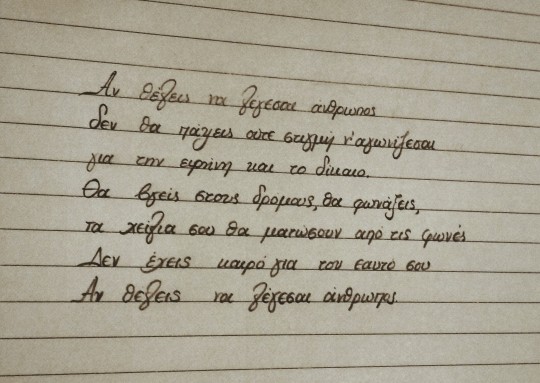 Αν θέλεις να λέγεσαι άνθρωπος
δεν θα πάψεις ούτε στιγμή ν'αγωνίζεσαι
για την ειρήνη και το δίκαιο.
Θα βγείς στους δρόμους, θα φωνάξεις,
τα χείλια σου θα ματώσουν από τις φωνές
Δεν έχεις καιρό για τον εαυτό σου
Αν θέλεις να λέγεσαι άνθρωπος.